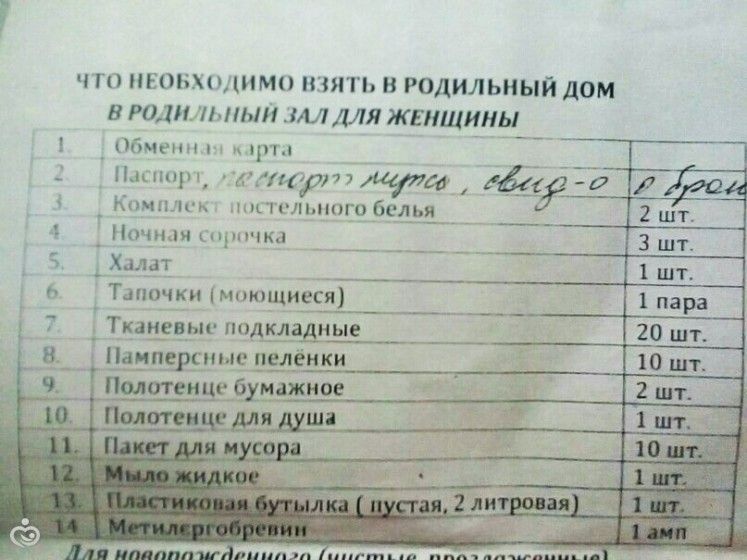 ЧТО НЕОБХОДИМО ВЗЯТЬ В РОДИЛЬНЫЙ ДОМ
В РОДИЛЬНЫЙ ЗАЛ ДЛЯ ЖЕНЩИНЫ
1. Обменная карта
2. Паспорт, паспорт мужа, свид-о о брак
3. Комплект постельного белья 2 шт.
4. Ночная сорочка 3 шт.
5. Халат 1 шт.
6. Тапочки (моющиеся) 1 пара
7. Тканевые подкладные 20 шт.
8. Памперсные пелёнки 10 шт.
9. Полотенце бумажное 2 шт.
10. Полотенце для душа 1 шт.
11. Пакет для мусора 10 шт.
12. Мыло жидкое 1 шт.
13. Пластиковая бутылка ( пустая, 2 литровая) 1 шт.
14 Метилергобревин 1 амп
Для новорожденного (чистые, проглаженные)